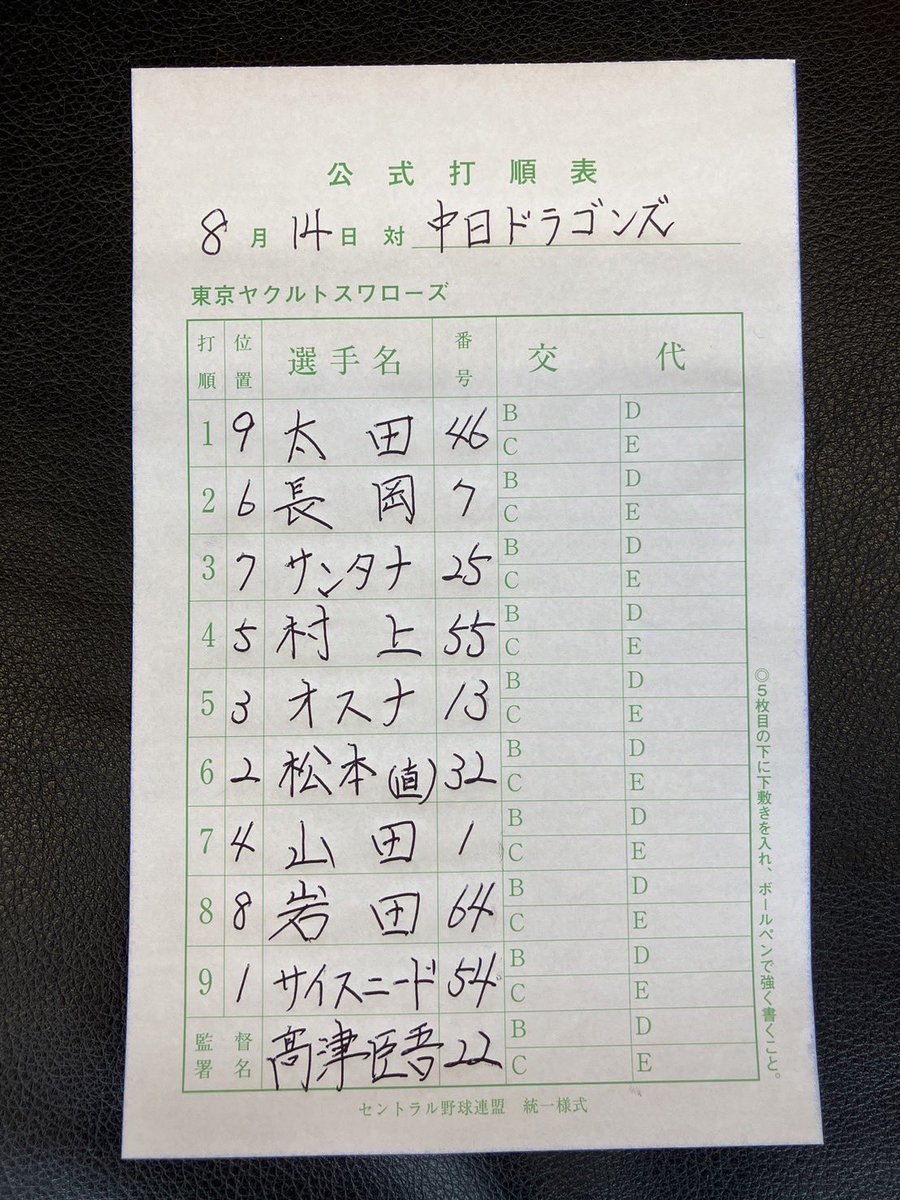 公式打順表
8月14日 対 中日ドラゴンズ
東京ヤクルトスワローズ
打順 位置 選手名 番号 交代
1 9 太田 46 B D C E
2 6 長岡 7 B D C E
3 7 サンタナ 25 B D C E
4 5 村上 55 B D C E
5 3 オスナ 13 B D C E
6 2 松本(直) 32 B D C E
7 4 山田 1 B D C E
8 8 岩田 64 B D C E
9 1 サイスニード 54 B D C E
監督署名 高津臣吾 22 B D C E
セントラル野球連盟 統一様式
◎5枚目の下に下敷きを入れ、ボールペンで強く書くこと。